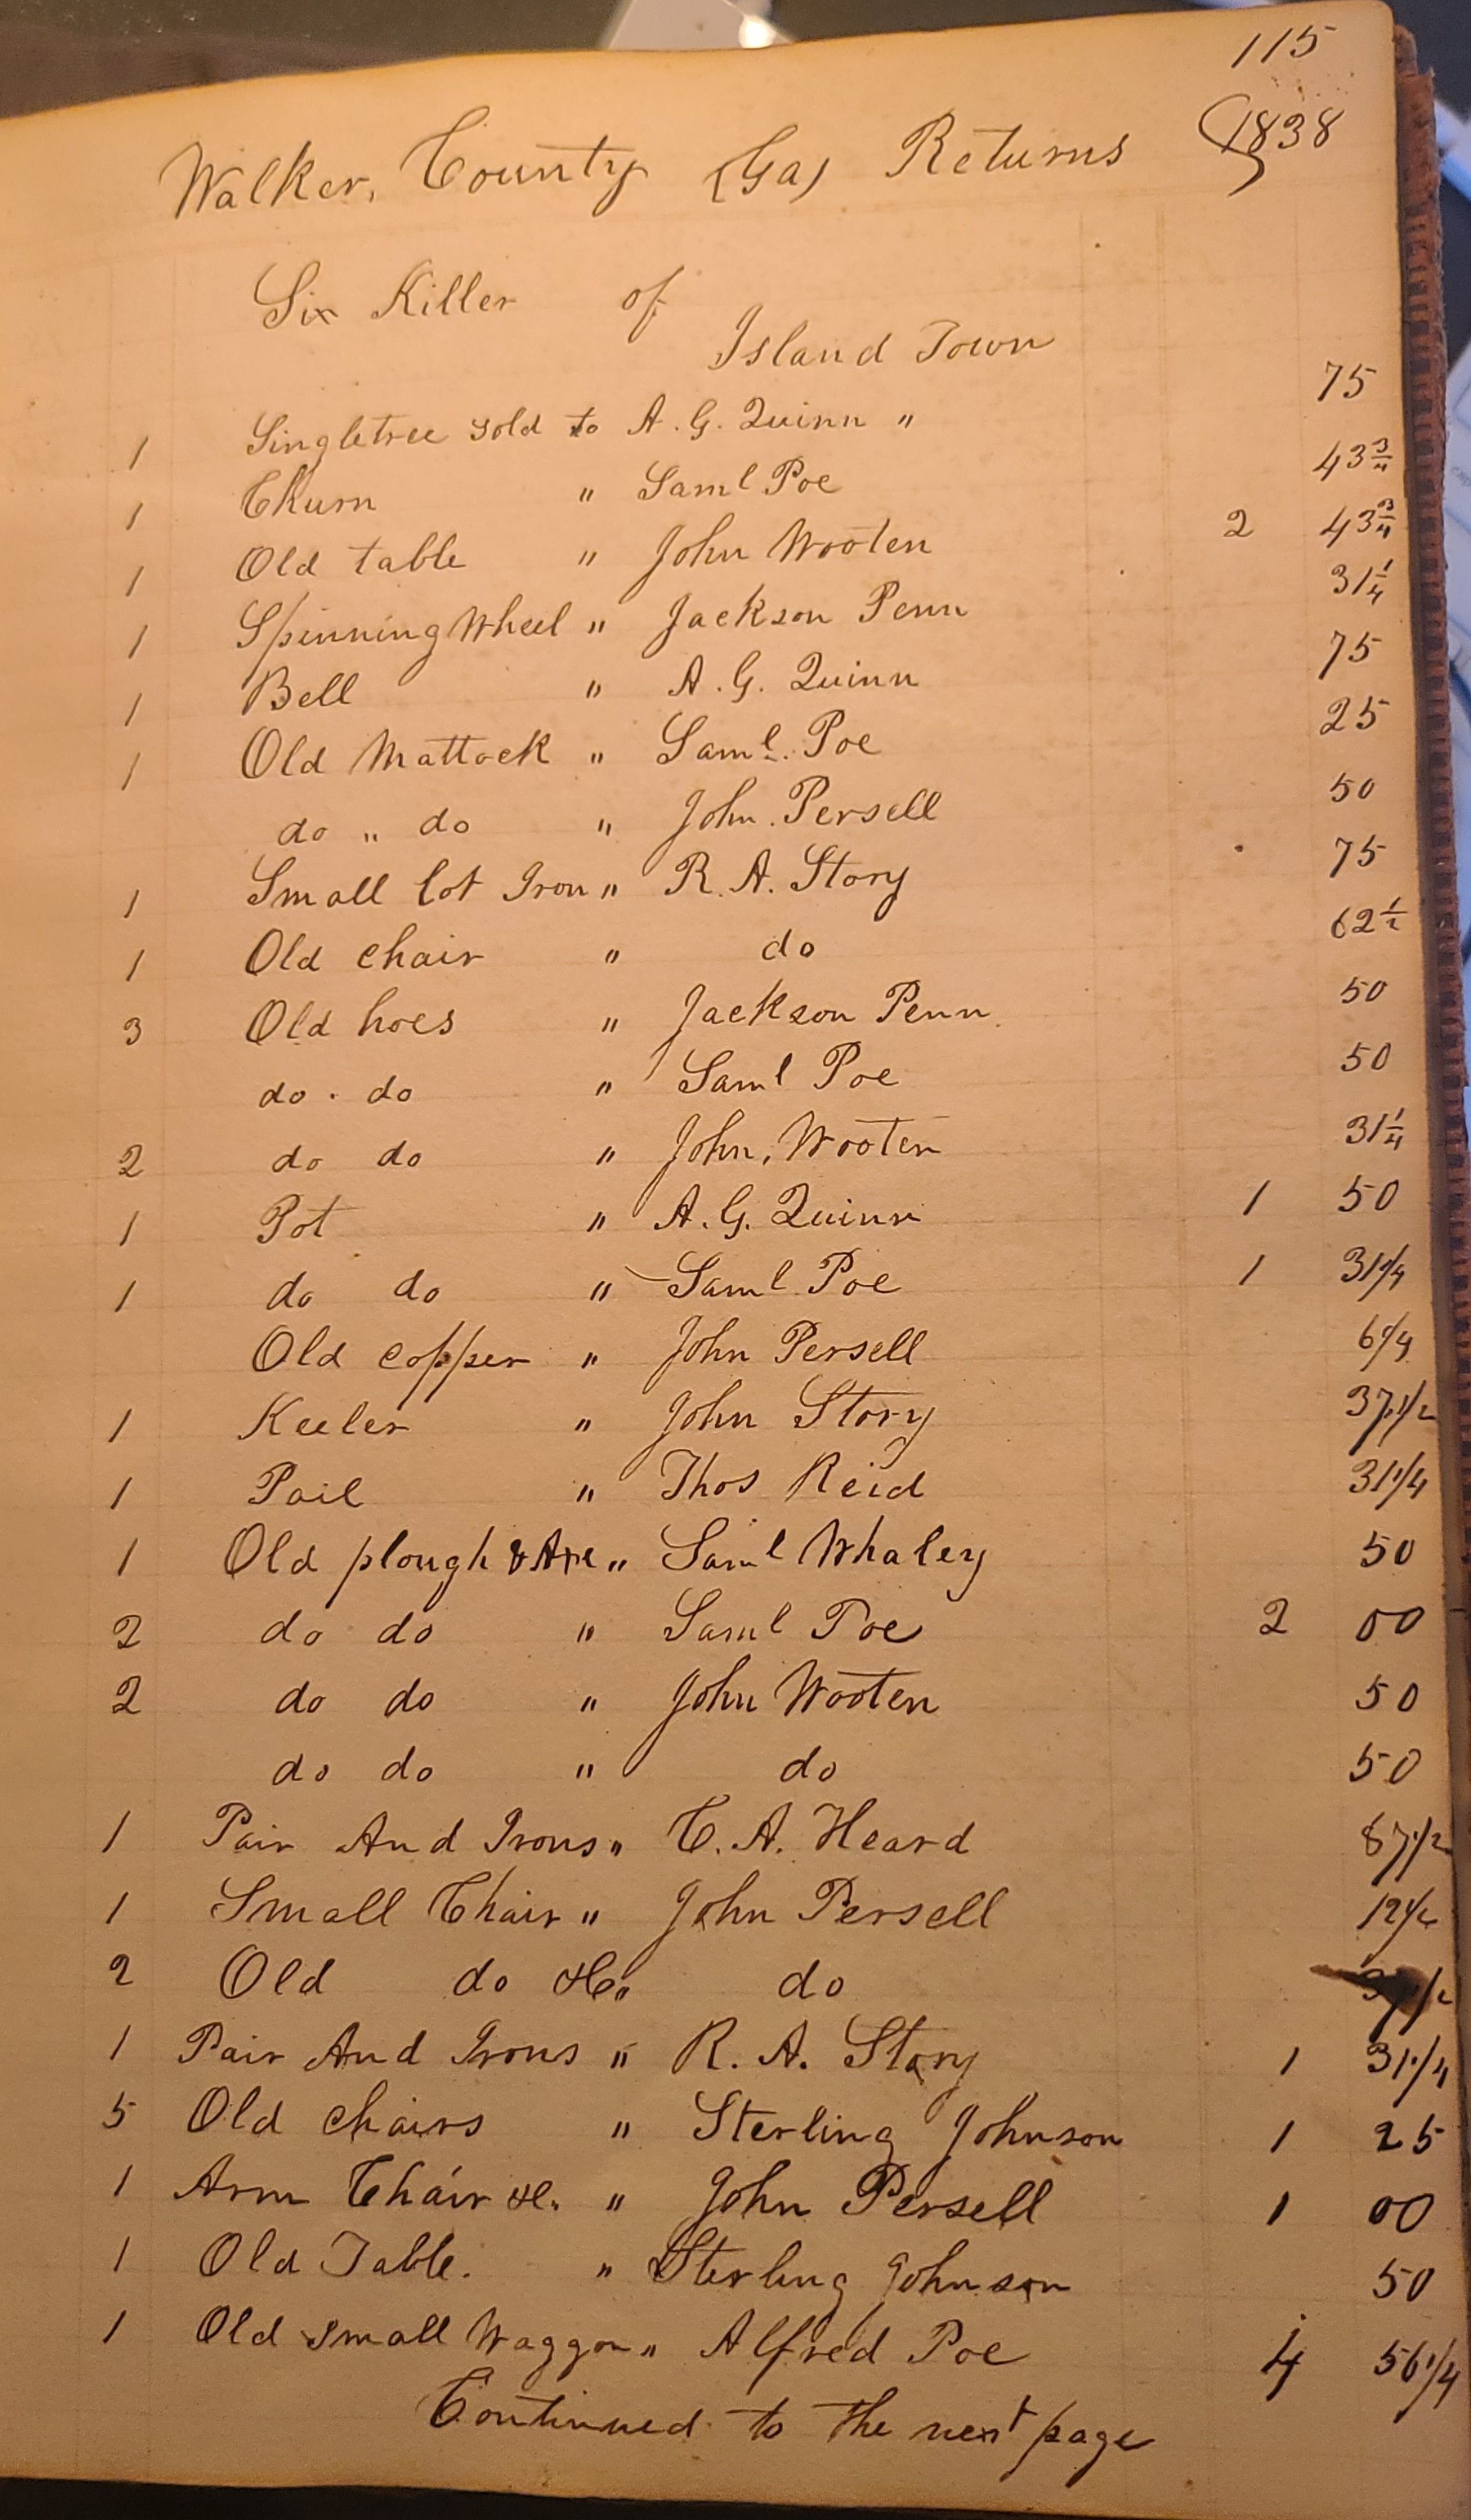 115
Walker, County (Ga) Returns 1838
Six Killer of
Island Town
1 Singletree sold to A. G. Quinn " 75
1 Churn " Saml Poe 43 3/4
1 Old table " John Wooten 2 43 3/4
1 Spinning Wheel " Jackson Penn 31 1/4
1 Bell " A. G. Quinn 75
1 Old Mattock " Saml. Poe 25
do " do " John. Persell 50
1 Small lot Iron " R. A. Story 75
1 Old chair " do 62 1/2
3 Old hoes " Jackson Penn 50
do . do " Saml Poe 50
2 do do " John, Wooten 31 1/4
1 Pot " A. G. Quinn 1 50
1 do do " Saml Poe 1 31 1/4
Old copper " John Persell 6 1/4
1 Keeler " John Story 37 1/2
1 Pail " Thos Reid 31 1/4
1 Old plough & Axe " Saml Whaley 50
2 do do " Saml Poe 2 00
2 do do " John Wooten 50
do do " do 50
1 Pair And Irons " C. A. Heard 87 1/2
1 Small Chair " John Persell 12 1/2
2 Old do &c " do 37 1/2
1 Pair And Irons " R. A. Story 1 31 1/4
5 Old chairs " Sterling Johnson 1 25
1 Arm Chair &c. " John Persell 1 00
1 Old Table. " Sterling Johnson 50
1 Old small Waggon " Alfred Poe 4 56 1/4
Continued to the next page